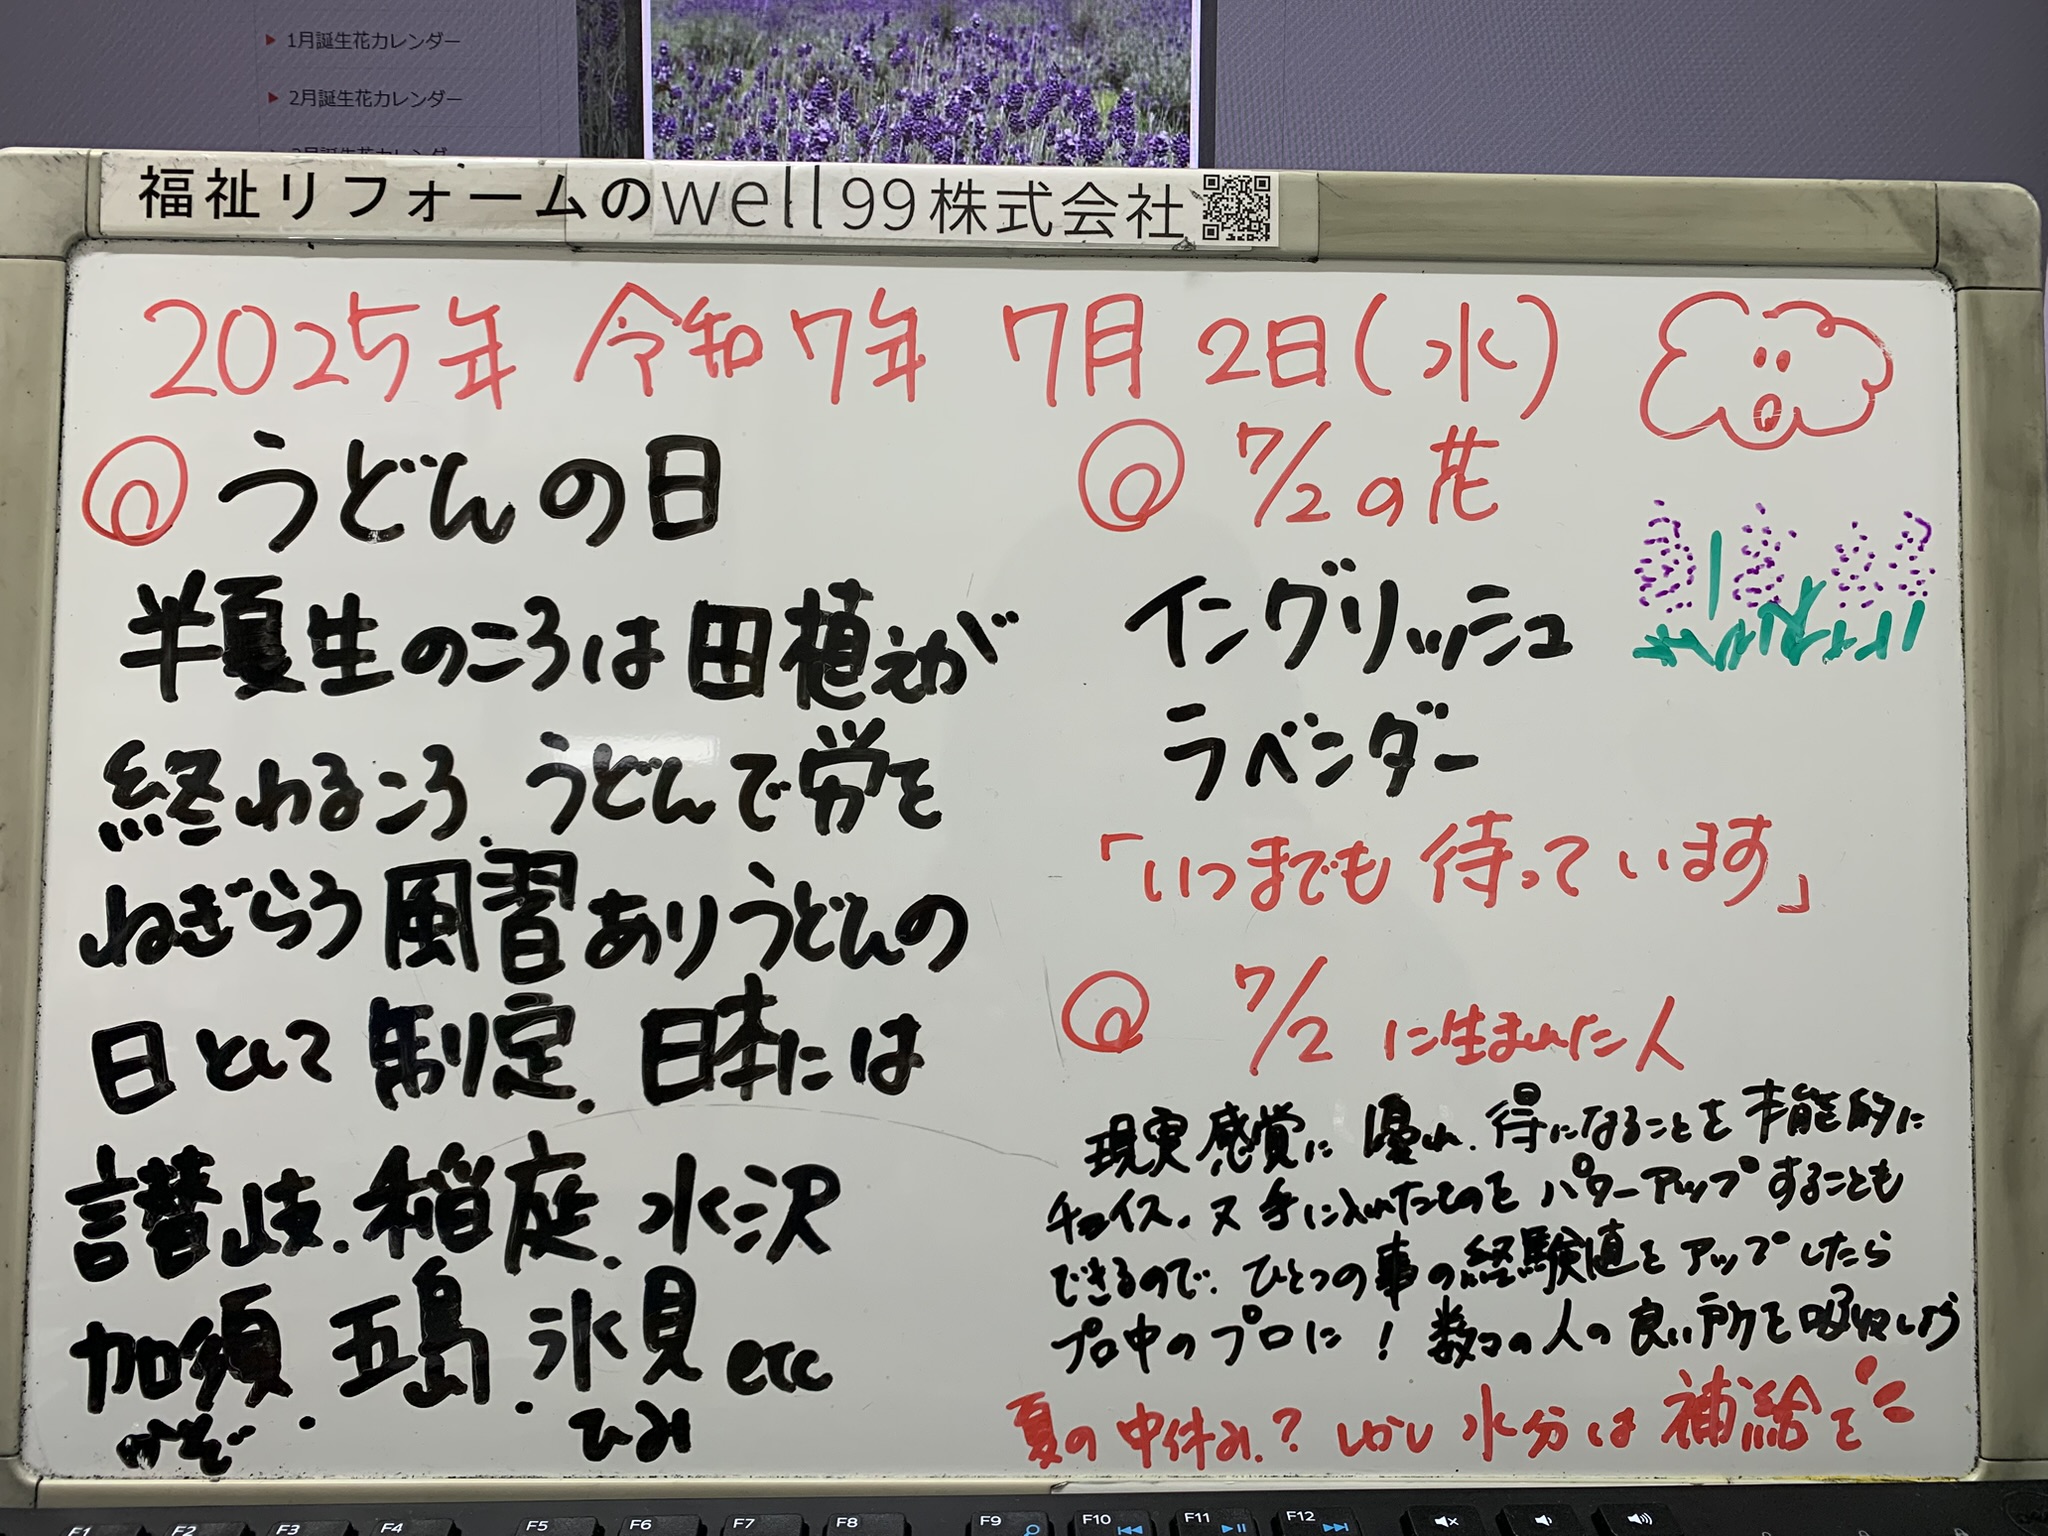 1月誕生花カレンダー
2月誕生花カレンダー
福祉リフォームのwell99株式会社
2025年 令和7年 7月 2日(水)
うどんの日
半夏生のころは田植えが
終わるころ.うどんで労を
ねぎらう風習ありうどんの
日として制定.日本には
讃岐.稲庭.水沢
加須.五島.氷見etc
かぞ ひみ
7/2の花
イングリッシュ
ラベンダー
「いつまでも待っています」
7/2 に生まれた人
現実感覚に優れ.得になることを本能的に
チョイス.又手に入れたものをパワーアップすることも
できるので.ひとつの事の経験値をアップしたら
プロ中のプロに!数々の人の良い所を吸収しよう
夏の中休み.?しかし水分は補給を
F1 F2 F3 F4 F5 F6 F7 F8 F9 F10 F11 F12